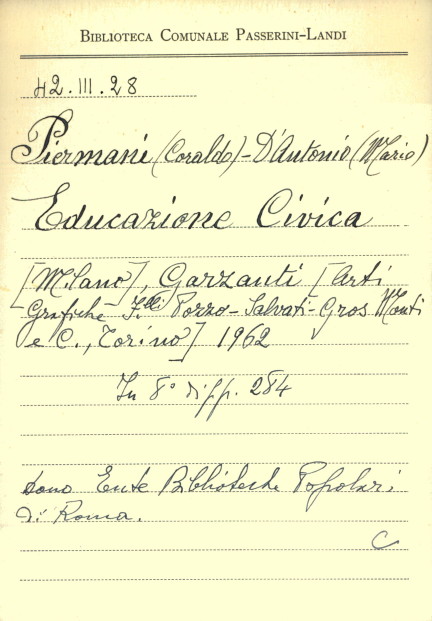 BIBLIOTECA COMUNALE PASSERINI-LANDI
42.III.28
Piermani (Coraldo)-D'Antonio (Mario)
Educazione Civica
[Milano], Garzanti [Arti
Grafiche F.lli Pozzo-Salvati-Gros Monti
e C., Torino] 1962
In 8° di pp. 284
dono Ente Biblioteche Popolari
di Roma.
C